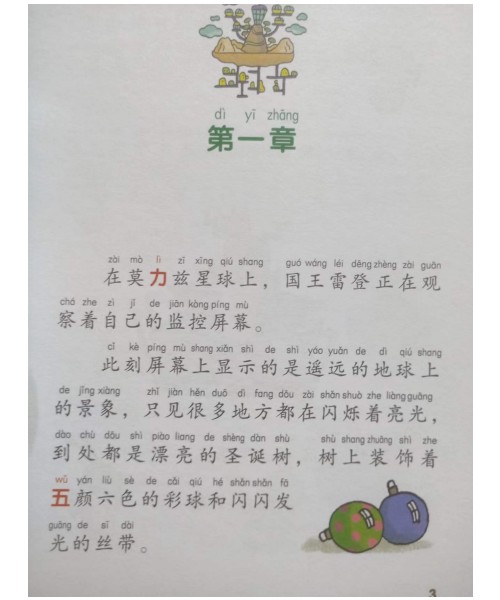 dì yī zhāng
第一章
zài mò lì zī xīng qiú shang guó wáng léi dēng zhèng zài guān
在莫力兹星球上，国王雷登正在观
chá zhe zì jǐ de jiān kòng píng mù
察着自己的监控屏幕。
cǐ kè píng mù shang xiǎn shì de shì yáo yuǎn de dì qiú shang
此刻屏幕上显示的是遥远的地球上
de jǐng xiàng zhǐ jiàn hěn duō dì fang dōu zài shǎn shuò zhe liàng guāng
的景象，只见很多地方都在闪烁着亮光，
dào chù dōu shì piào liang de shèng dàn shù shù shang zhuāng shì zhe
到处都是漂亮的圣诞树，树上装饰着
wǔ yán liù sè de cǎi qiú hé shǎn shǎn fā
五颜六色的彩球和闪闪发
guāng de sī dài
光的丝带。
3